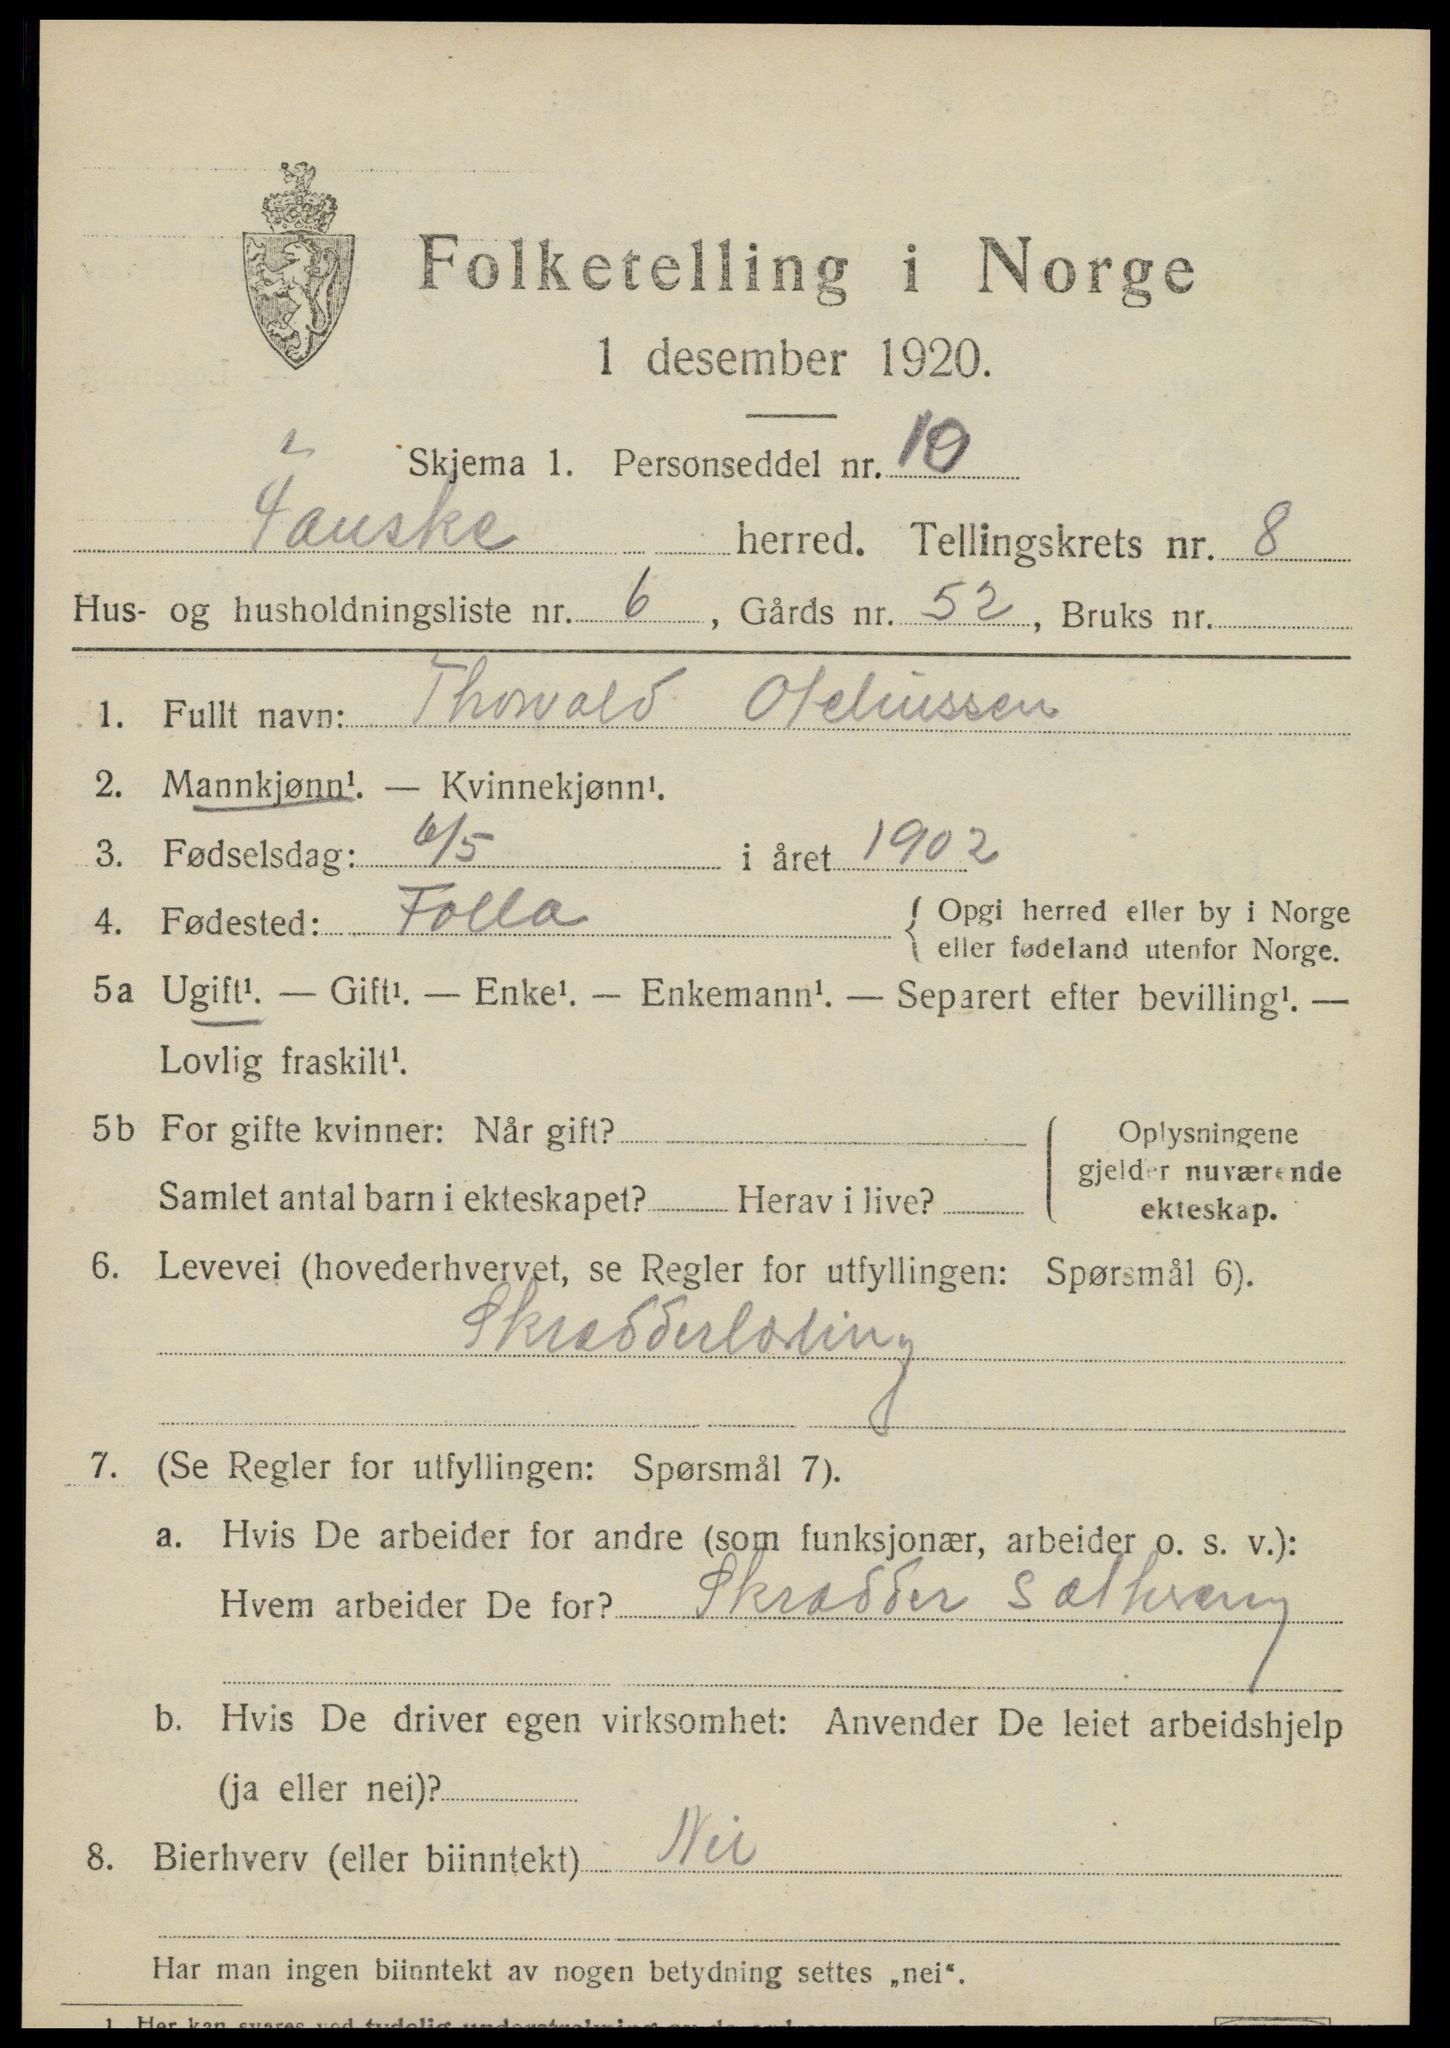 Folketelling i Norge
1 desember 1920.
Skjema 1. Personseddel nr. 10
Fauske herred. Tellingskrets nr. 8
Hus- og husholdningsliste nr. 6, Gårds nr. 52, Bruks nr.
1. Fullt navn: Thorvald
2. Mannkjønn¹. — Kvinnekjønn¹.
3. Fødselsdag: 6/5 i året 1902
4. Fødested: Folla { Opgi herred eller by i Norge
eller fødeland utenfor Norge.
5a Ugift¹. — Gift¹. — Enke¹. — Enkemann¹. — Separert efter bevilling¹. —
Lovlig fraskilt¹.
5b For gifte kvinner: Når gift?
Samlet antal barn i ekteskapet? Herav i live?
Oplysningene
gjelder nuværende
ekteskap.
6. Levevei (hovederhvervet, se Regler for utfyllingen: Spørsmål 6).
Skrædderlærling
7. (Se Regler for utfyllingen: Spørsmål 7).
a. Hvis De arbeider for andre (som funksjonær, arbeider o. s. v.):
Hvem arbeider De for? Skrædder
b. Hvis De driver egen virksomhet: Anvender De leiet arbeidshjelp
(ja eller nei)?
8. Bierhverv (eller biinntekt) Nei
Har man ingen biinntekt av nogen betydning settes „nei“.